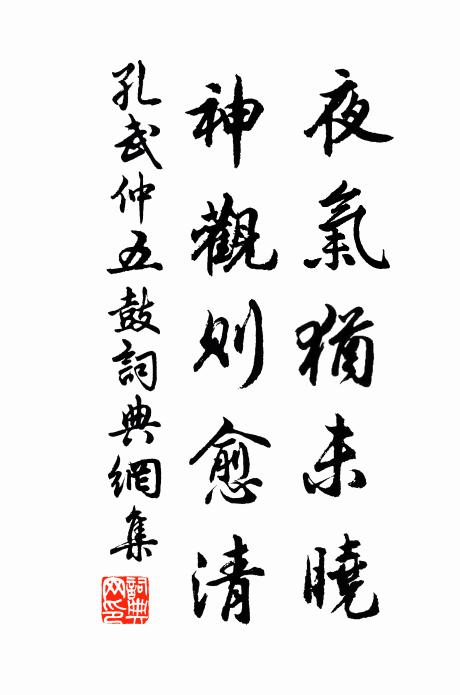 夜氣猶未曉
神觀則愈清
孔武仲五鼓詞典網集
詞典
网印